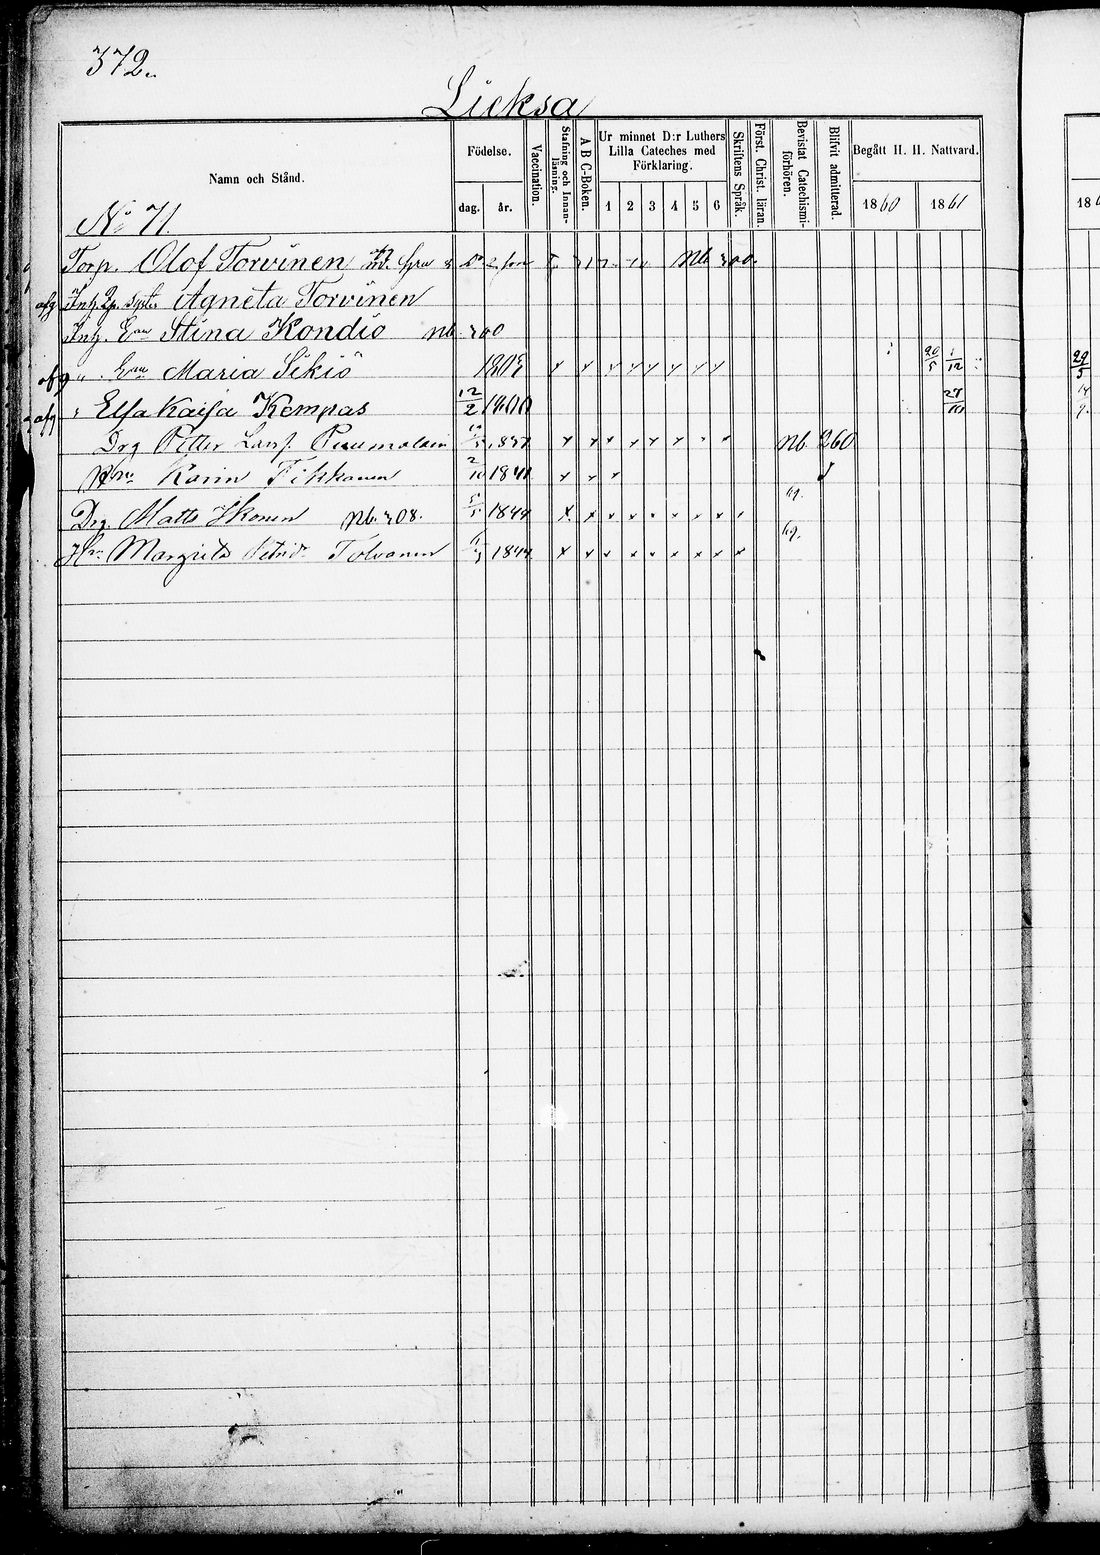 372.
Lieksa
Namn och Stånd.
Födelse.
dag. år.
Vaccination.
Stafning och Innanläsning.
A B C-Boken.
Ur minnet D:r Luthers Lilla Cateches med Förklaring.
1 2 3 4 5 6
Skriftens Språk.
Först. Christ. läran.
Bevistat Catechismiförhören.
Blifvit admitterad.
Begått H. H. Nattvard.
1860 1861
No 71.
Torp. Olof Torvinen Nb. 300.
afg Inh. Agneta Torvinen
Inh. Enk. Stina Kondio Nb 300
afg " Enk. Maria Sikiö 180 20/5 1/12
afg " Elsa Kaisa Kempas 12/2 1800 27/10
Drg Petter Nb 260
Karin Tikkanen 2/10 1841
Drg. Matts Ikonen Nb. 308. 5/5 1844
Margreta Tolvanen 1844